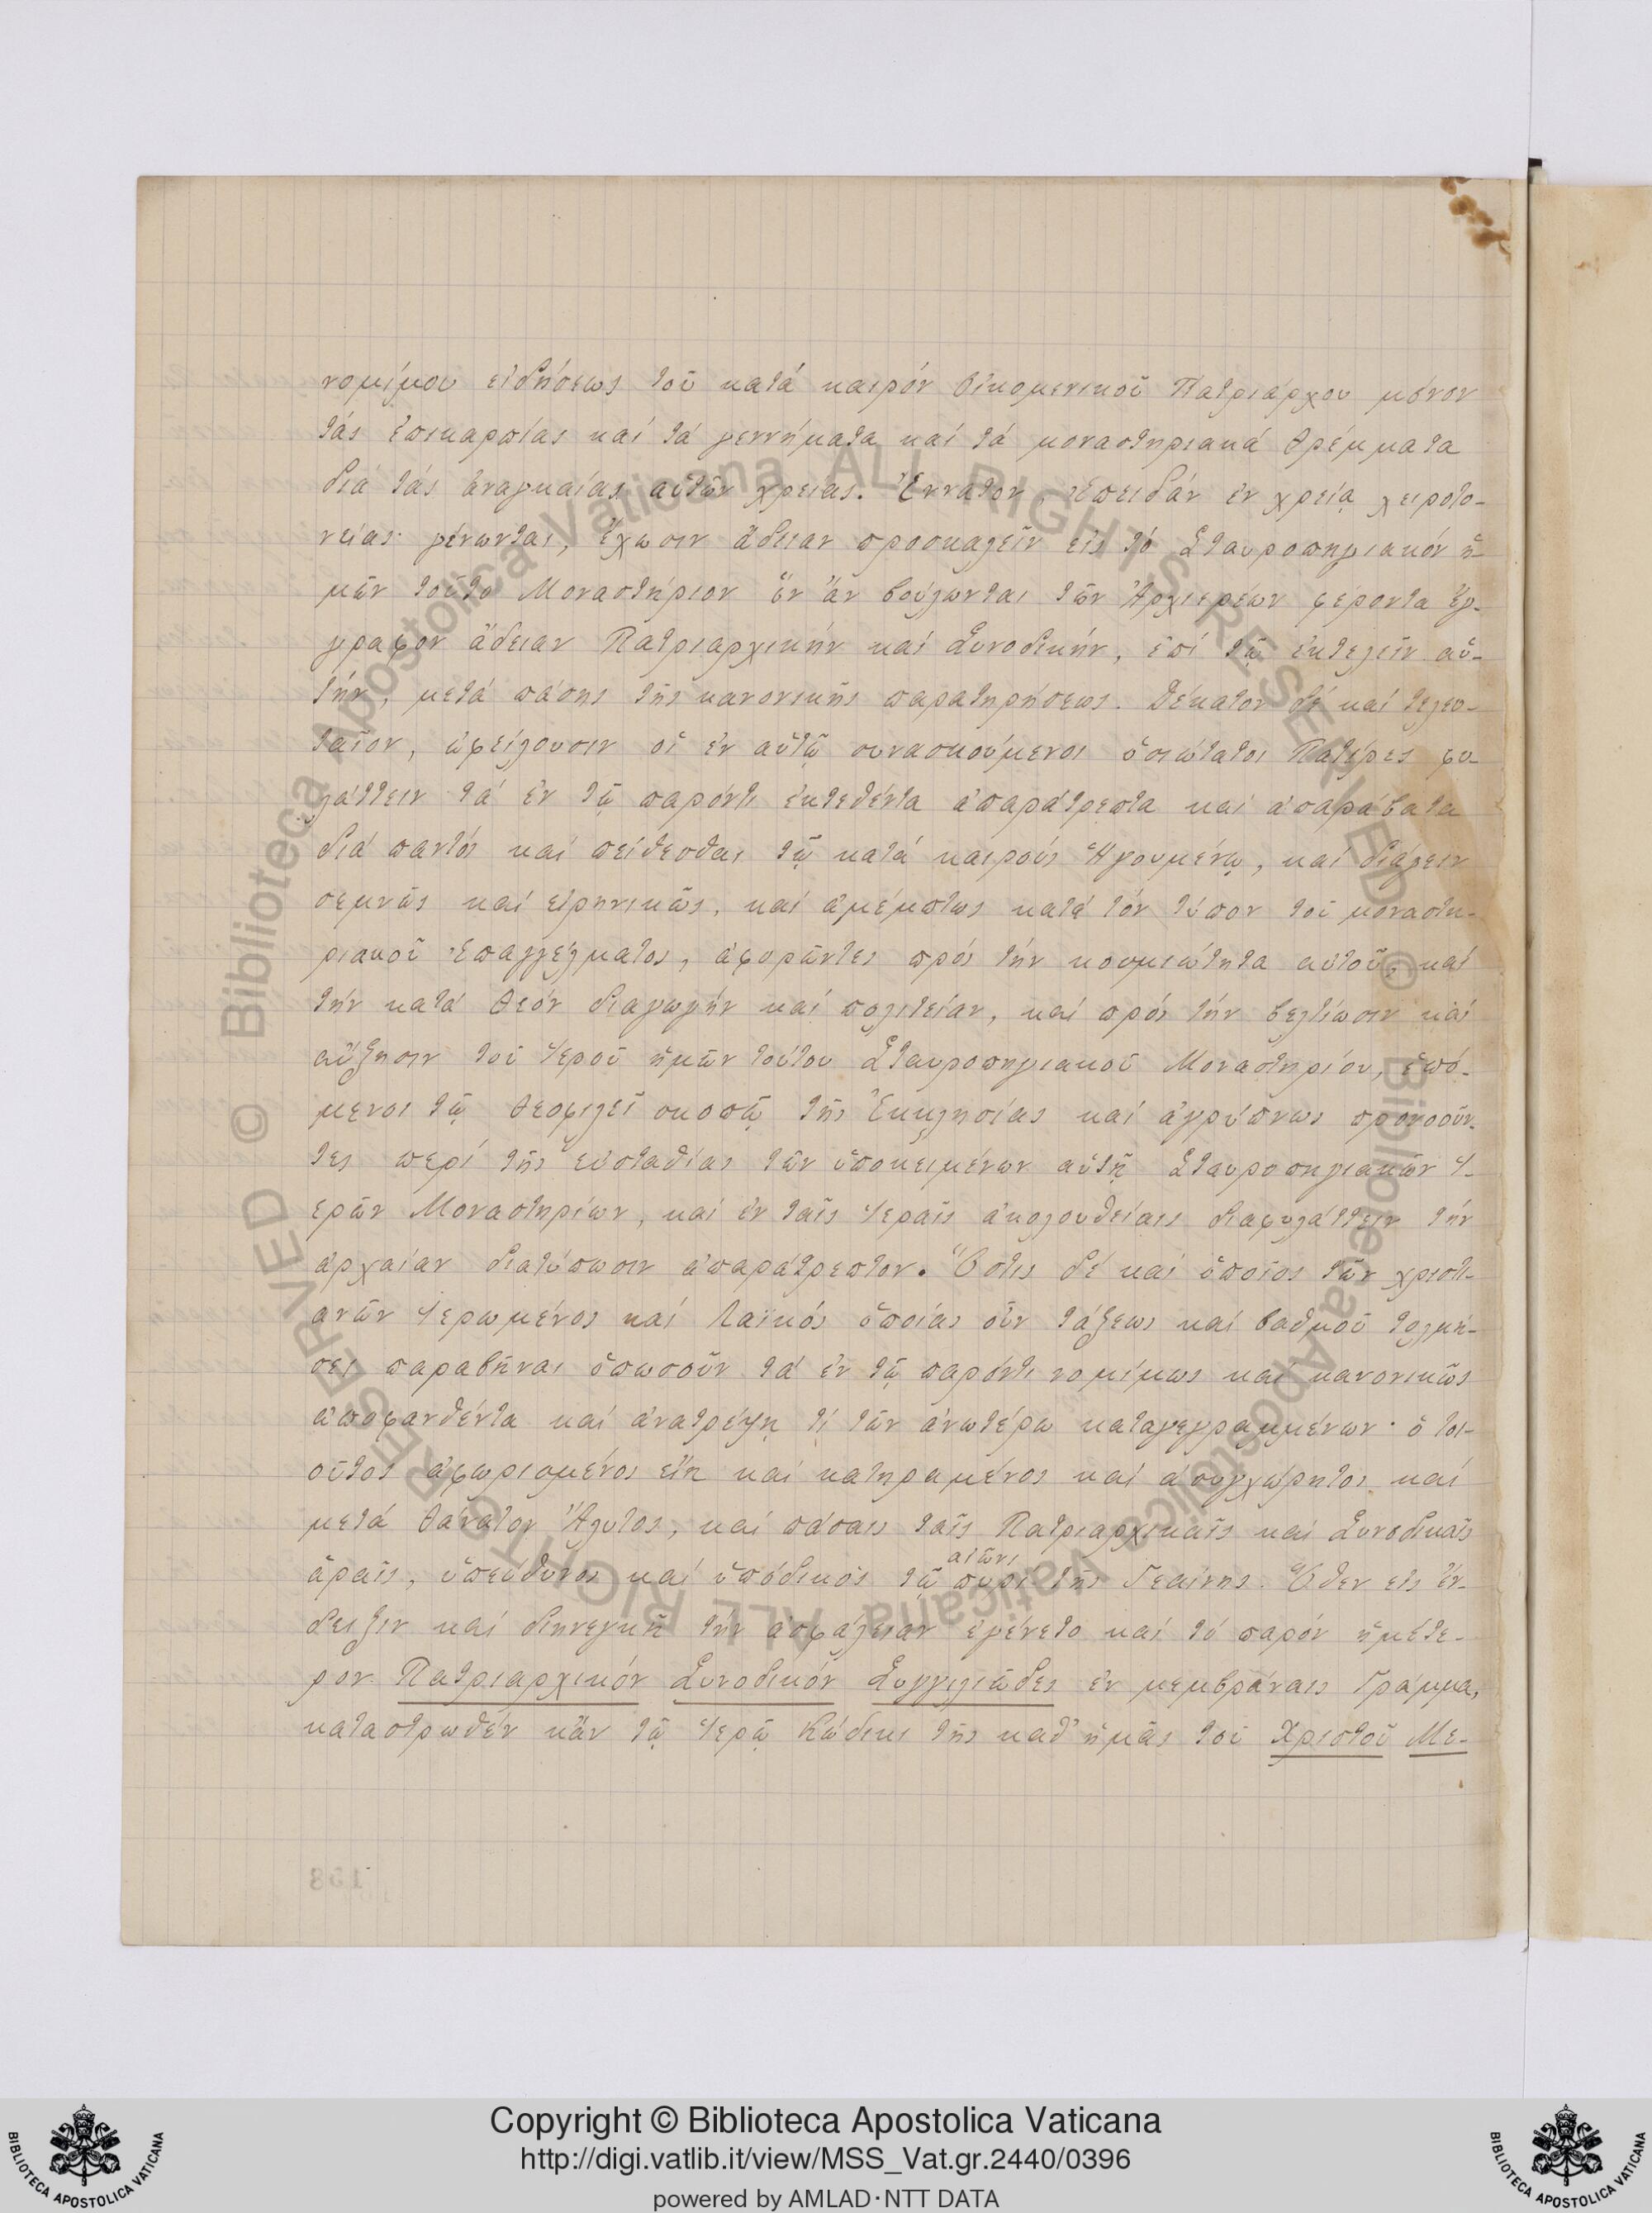 νομίμου εἰδήσεως τοῦ κατά καιρόν Οἰκομενικοῦ Πατριάρχου μόνον
τάς ἐπικαρπίας καί τά γεννήματα καί τά μοναστηριακά θρέμματα
διά τάς ἀναγκαίας αὐτῶν χρείας. Ἔννατον, Ἐπειδάν ἐν χρείᾳ χειροτο-
νείας γένωνται, ἔχωσιν ἄδειαν προσκαλεῖν εἰς τό Σταυροπηγιακόν ἡ-
μῶν τοῦτο Μοναστήριον ὅν ἄν βούλωνται τῶν Ἀρχιερέων φέροντα ἔγ-
γραφον ἄδειαν Πατριαρχικήν καί Συνοδικήν, ἐπί τῷ ἐκτελεῖν αὐ-
τήν, μετά πάσης τῆς κανονικῆς παρατηρήσεως. Δέκατον δέ καί τελευ-
ταῖον, ὠφείλουσιν οἵ ἐν αὐτῷ συνασκούμενοι ὁσιώτατοι Πατέρες φυ-
λάττειν τά ἐν τῷ παρόντι ἐκτεθέντα ἀπαράτρεπτα καί ἀπαράβατα
διά παντός καί πείθεσθαι τῷ κατά καιρούς Ἡγουμένῳ, καί διάγειν
σεμνῶς καί εἰρηνικῶς, καί ἀμέμπτως κατά τόν τύπον τοῦ μοναστη-
ριακοῦ Ἐπαγγέλματος, ἀφορῶντες πρός τήν κοσμιώτητα αὐτοῦ, καί
τήν κατά Θεόν διαγωγήν καί πολιτείαν, καί πρός τήν βελτίωσιν καί
αὔξησιν τοῦ Ἱεροῦ ἡμῶν τούτου Σταυροπηγιακοῦ Μοναστηρίου, ἑπό-
μενοι τῷ θεοφιλεῖ σκοπῷ τῆς Ἐκκλησίας καί ἀγρύπνως προνοοῦν-
τες περί τῆς εὐσταθίας τῶν ὑποκειμένων αὐτῇ Σταυροπηγιακῶν Ἱ-
ερῶν Μοναστηρίων, καί ἐν ταῖς Ἱεραῖς ἀκολουθείαις διαφυλάττειν τήν
ἀρχαίαν διατύπωσιν ἀπαράτρεπτον. Ὅστις δέ καί ὁποῖος τῶν χριστι-
ανῶν Ἱερωμένος καί Λαϊκός ὁποίας οὖν τάξεως καί βαθμοῦ τολμή-
σει παραβῆναι ὁπωσοῦν τά ἐν τῷ παρόντι νομίμως καί κανονικῶς
ἀποφανθέντα καί ἀνατρέψῃ τί τῶν ἀνωτέρω καταγεγραμμένων· ὁ τοι-
οῦτος ἀφωρισμένος εἴη καί κατηραμένος καί ἀσυγχώρητος καί
μετά θάνατον Ἄλυτος, καί πάσαις ταῖς Πατριαρχικαῖς καί Συνοδικαῖς
ἀραῖς, ὑπεύθυνος καί ὑπόδικος τῷ αἰῶνι πυρί τῆς Γεαίνης. Ὅθεν εἰς ἔν-
δειξιν καί διηνεγκῆ τήν ἀσφάλειαν ἐγένετο καί τό παρόν ἡμέτε-
ρον Πατριαρχικόν Συνοδικόν Συγγιλιῶδες ἐν μεμβράναις Γράμμα,
καταστρωθέν κἄν τῷ Ἱερῷ Κώδικι τῆς καθ' ἡμᾶς τοῦ Χριστοῦ Με-
158
© Biblioteca Apostolica Vaticana ALL RIGHTS RESERVED
© Biblioteca Apostolica Vaticana ALL RIGHTS RESERVED
Copyright © Biblioteca Apostolica Vaticana
http://digi.vatlib.it/view/MSS_Vat.gr.2440/0396
powered by AMLAD·NTT DATA
BIBLIOTECA APOSTOLICA VATICANA
BIBLIOTECA APOSTOLICA VATICANA